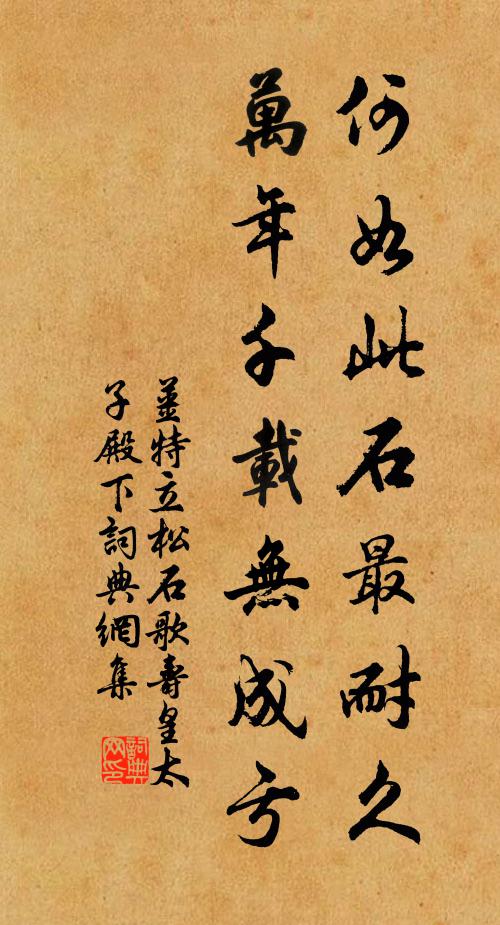 何如此石最耐久
萬年千載無成亏
薑特立松石歌壽皇太
子殿下詞典網集
詞典
网印